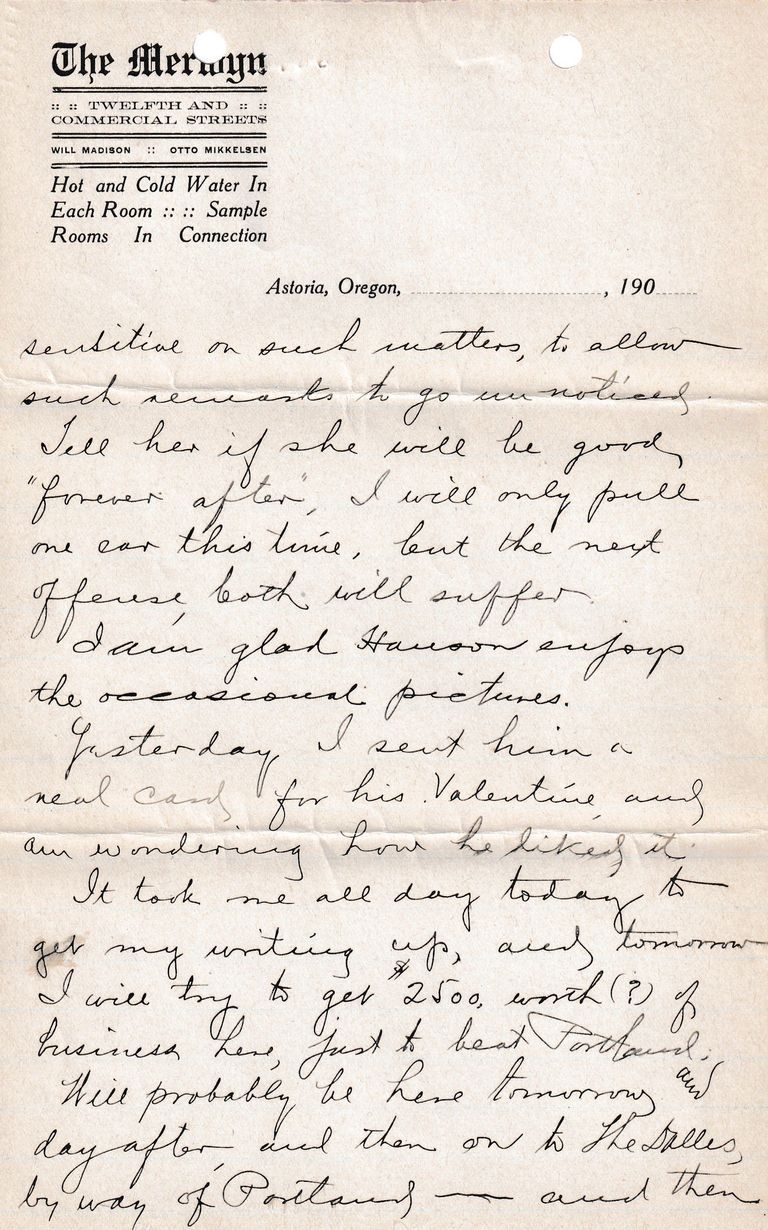 The Merwyn
:: :: TWELFTH AND :: ::
COMMERCIAL STREETS
WILL MADISON :: OTTO MIKKELSEN
Hot and Cold Water In
Each Room :: :: Sample
Rooms In Connection
Astoria, Oregon, , 190
sensitive on such matters, to allow
such remarks to go unnoticed.
Tell her if she will be good
"forever after", I will only pull
one ear this time, but the next
offense, both will suffer.
I am glad Hanson enjoys
the occasional pictures.
Yesterday I sent him a
neat card for his Valentine and
am wondering how he liked it.
It took me all day today to
get my writing up, and tomorrow
I will try to get $2500. worth (?) of
business here, just to beat Portland.
Will probably be here tomorrow and
day after, and then on to The Dalles,
by way of Portland — and then